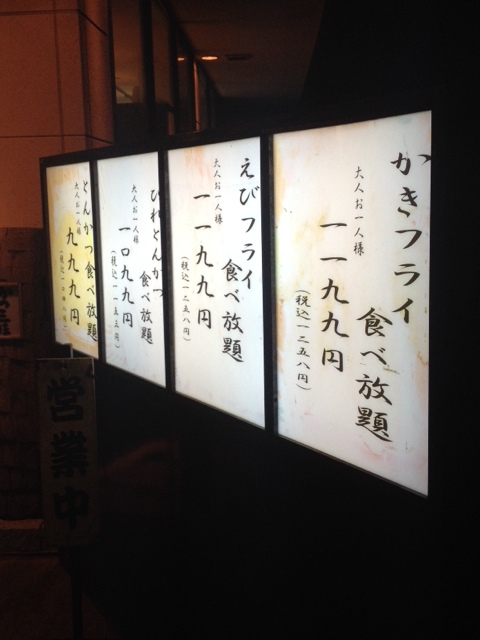 かきフライ
食べ放題
大人お一人様
一一九九円
(税込一二五八円)
えびフライ
食べ放題
大人お一人様
一一九九円
(税込一二五八円)
ひれとんかつ
食べ放題
大人お一人様
一〇九九円
とんかつ食べ放題
大人お一人様
九九九円
(税込一〇四八円)
営業中